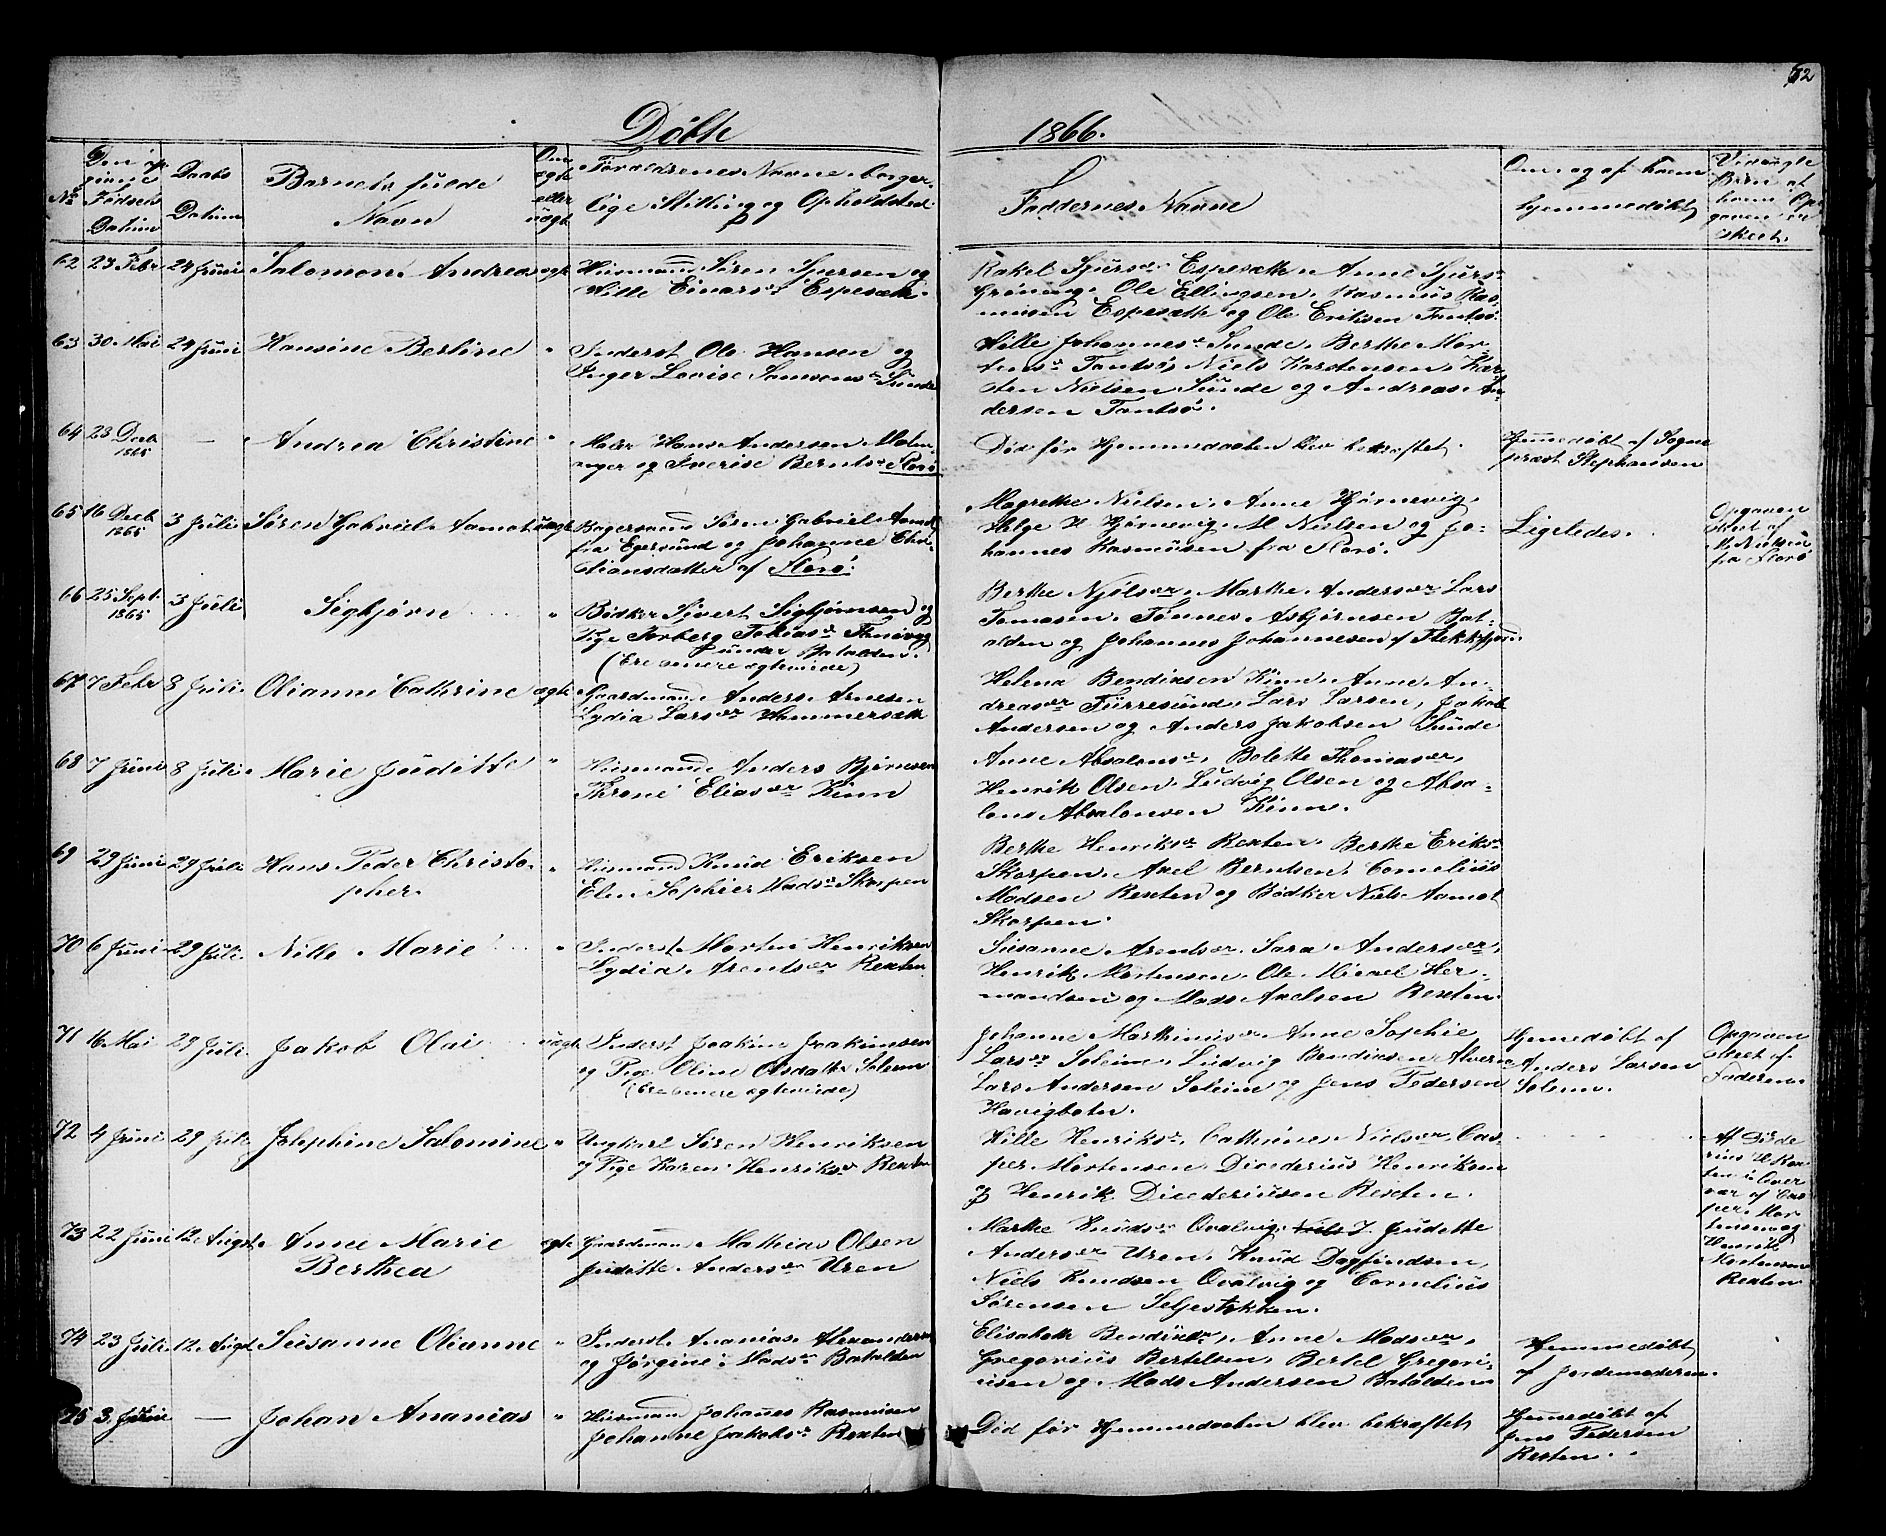 72
Døbte 1866.
No
Den op
givne
Fødsels
Datum
Daabs
Datum
Barnets fulde
Navn
Om
ægte
eller
uægte
Forældrenes Navne borger-
lige Stilling og Opholdsted
Faddernes Navne
Om, og af hvem
hjemmedøbt
Ved uægte
Børn af
hvem Op-
gaven er
skeet.
62 23 Febr 24 Juni Salomon Andreas ægte Huusmand Søren Sjursen og
Hille Einarsdr Espesæth.
Rakel Sjursdr Espesæth, Anne Sjursdr
Grønevig, Ole Ellingsen, Rasmus Ras-
musen Espesæth og Ole Eriksen Tantsø.
63 30 Mai 24 Juni Hansine Bertine " Inderst Ole Hansen og
Inger Lovise Samsonsdr Sunde
Hille Johannesdr Sunde, Berthe Mor-
tensdr Tantsø, Niels Karstensen, Kar-
sten Nielsen Sunde og Andreas An-
dersen Tantsø.
64 23 Decb 1865 — Andrea Christine " Maler Hans Andersen
og Berntsdr Florø
Død før Hjemmedaaben blev bekræftet.
Hjemmedøbt af Sogne
præst Stephansen
65 16 Decb 1865 3 Juli Søren Gabriel Aamot uægte Bagersvend Søren Gabriel Aamot
fra Egersund og Johanne Chri-
stiansdatter af Florø.
Magrethe Nielsen, Anne Hjørnevig,
Helge H Hjørnevig, M Nielsen og Jo-
hannes Rasmusen fra Florø.
Ligeledes.
Opgaven
skeet af
M. Nielsen
fra Florø
66 25 Sept. 1865 3 Juli Sigbjørn " Bødker Sivert Sigbjørnsen og
Pige Torberg Tobiasdr
under Batalden.
(Ere senere ægteviede)
Berthe Njølsdr, Marthe Andersdr Lars
Tomasen, Tønnes Asbjørnsen Bat-
alden og Johannes Johannesen af Flekkefjord.
67 7 Febr 8 Juli Olianne Cathrine ægte Gaardmand Anders Arnesen
Lydia Larsdr Hammersæth
Helena Bendixsen Kinn, Anne An-
dreasdr Furresund, Lars Larsen, Jakob
Andersen og Anders Jakobsen Sunde
68 7 Juni 8 Juli Marie Juditte " Huusmand Anders Bjørnsen
Throne Eliasdr Kinn
Anne Absalonsdr, Bolette Thomasdr,
Henrik Olsen, Ludvig Olsen og Absa-
lon Absalonsen Kinn.
69 29 Juni 29 Juli Hans Peder Christo-
pher. " Huusmand Knud Eriksen
Elen Sophie Madsdr Skorpen
Berthe Henriksdr Rexten, Berthe Eriksdr
Skorpen, Axel Berntsen, Cornelius
Madsen Rexten og Bødker Niels Aamot
Skorpen.
70 6 Juni 29 Juli Nille Marie " Inderst Morten Henriksen
Lydia Arentsdr Rexten
Susanne Arentsdr, Sara Andersdr,
Henrik Mortensen, Ole Mickel Her-
mandsen og Mads Axelsen Rexten.
71 16 Mai 29 Juli Jakob Olai uægte Inderst Joakim Joakimsen
og Pige Oline Olsdatter Solem
(Ere senere ægteviede)
Johanne Marthinusdr Anne Sophie
Larsdr Soleim, Ludvig Bendixsen Alveren
Lars Andersen Soleim og Jens Pedersen
Havigbotn.
Hjemmedøbt af
Anders Larsen
Solem.
Opgaven
skeet af
Faderen
72 4 Juni 29 Juli Josephine Salomine " Ungkarl Søren Henriksen
og Pige Karen Henriksdr Rexten
Hille Henriksdr, Cathrine Nielsdr, Cas-
per Mortensen, Diederius Henriksen
og Henrik Diederiusen Rexten.
Af Diede
rius H Rex-
ten i Over
vær af Cas
per Mor-
tensen og
Henrik
Mortensen
Rexten
73 22 Juni 12 Augst Anne Marie
Berthea ægte Gaardmand Mathias Olsen
Juditte Andersdr Uren
Marthe Knudsdr Qvalvig, Juditte
Andersdr Uren, Knud Dagfindsen,
Niels Knudsen Qvalvig og Cornelius
Sørensen Seljestokken.
74 23 Juli 12 Augst Susanne Olianne " Inderst Ananias Alexandersen
og Jørgine Madsdr Batalden
Elisabeth Bendixdr, Anne Madsdr,
Gregorius Bertelsen, Bertel Gregori-
usen og Mads Andersen Batalden
Hjemmedøbt
af Jordemoderen.
75 3 Juni — Johan Ananias " Huusmand Johannes Rasmusen
Johanne Jakobsdr Rexten
Død før Hjemmedaaben blev bekræftet
Hjemmedøbt af
Jens Pedersen
Rexten.